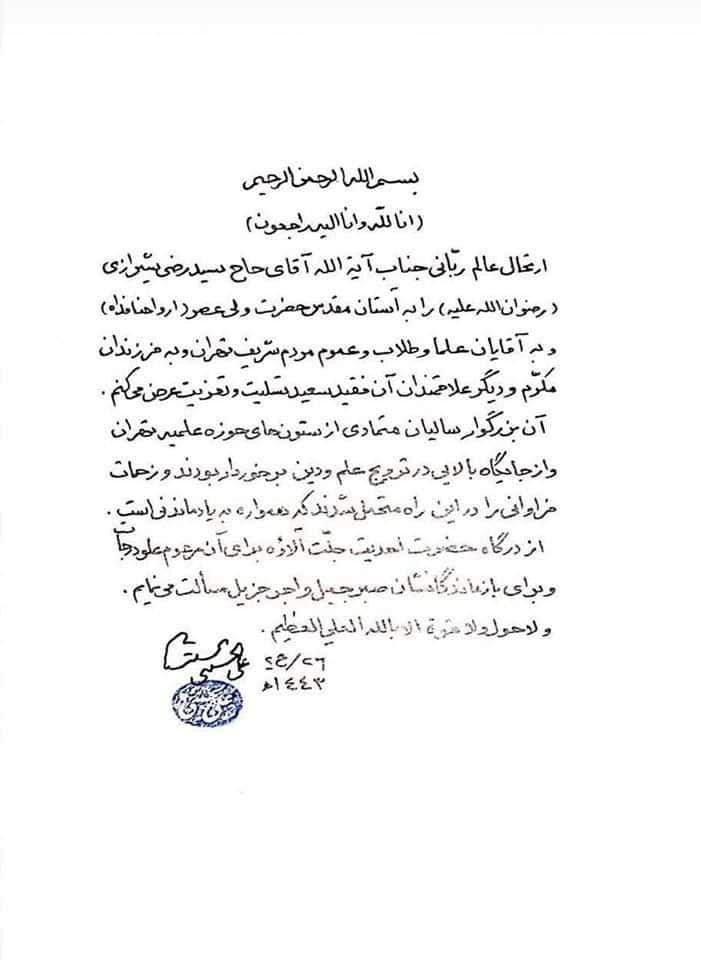 بسم الله الرحمن الرحیم
(انا لله وانا الیه راجعون)
ارتحال عالم ربّانی جناب آیة الله آقای حاج سید رضی شیرازی
(رضوان الله علیه) را به آستان مقدس حضرت ولی عصر (ارواحنا فداه)
و به آقایان علما و طلاب و عموم مردم شریف تهران و به فرزندان
مکرّم و دیگر علاقمندان آن فقید سعید تسلیت و تعزیت عرض می‌کنم .
آن بزرگوار سالیان متمادی از ستون‌های حوزه علمیه تهران
و از جایگاه بالایی در ترویج علم و دین برخوردار بودند و زحمات
فراوانی را در این راه متحمل شدند که همواره به یادماندنی است .
از درگاه حضرت احدیت جلّت آلاؤه برای آن مرحوم علو درجات
و برای بازماندگانشان صبر جمیل و اجر جزیل مسألت می‌نمایم .
ولا حول ولا قوة الا بالله العلي العظیم .
٢٦/ع٢
١٤٤٣هـ
علی الحسینی